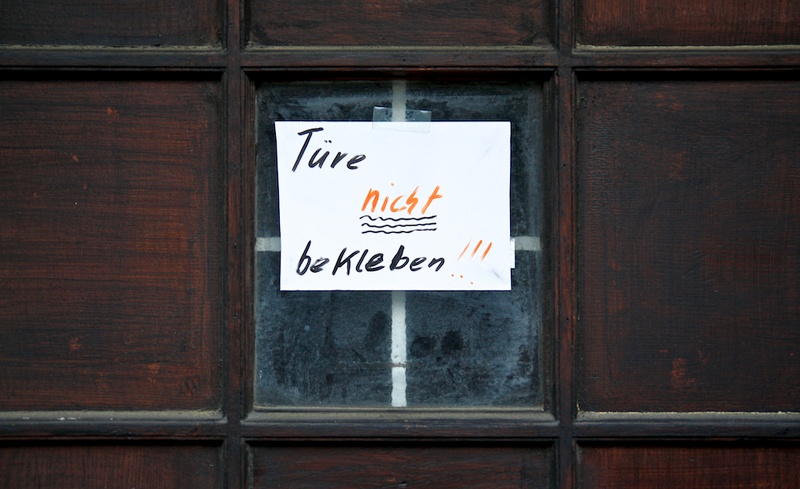 Türe
nicht
bekleben!!!